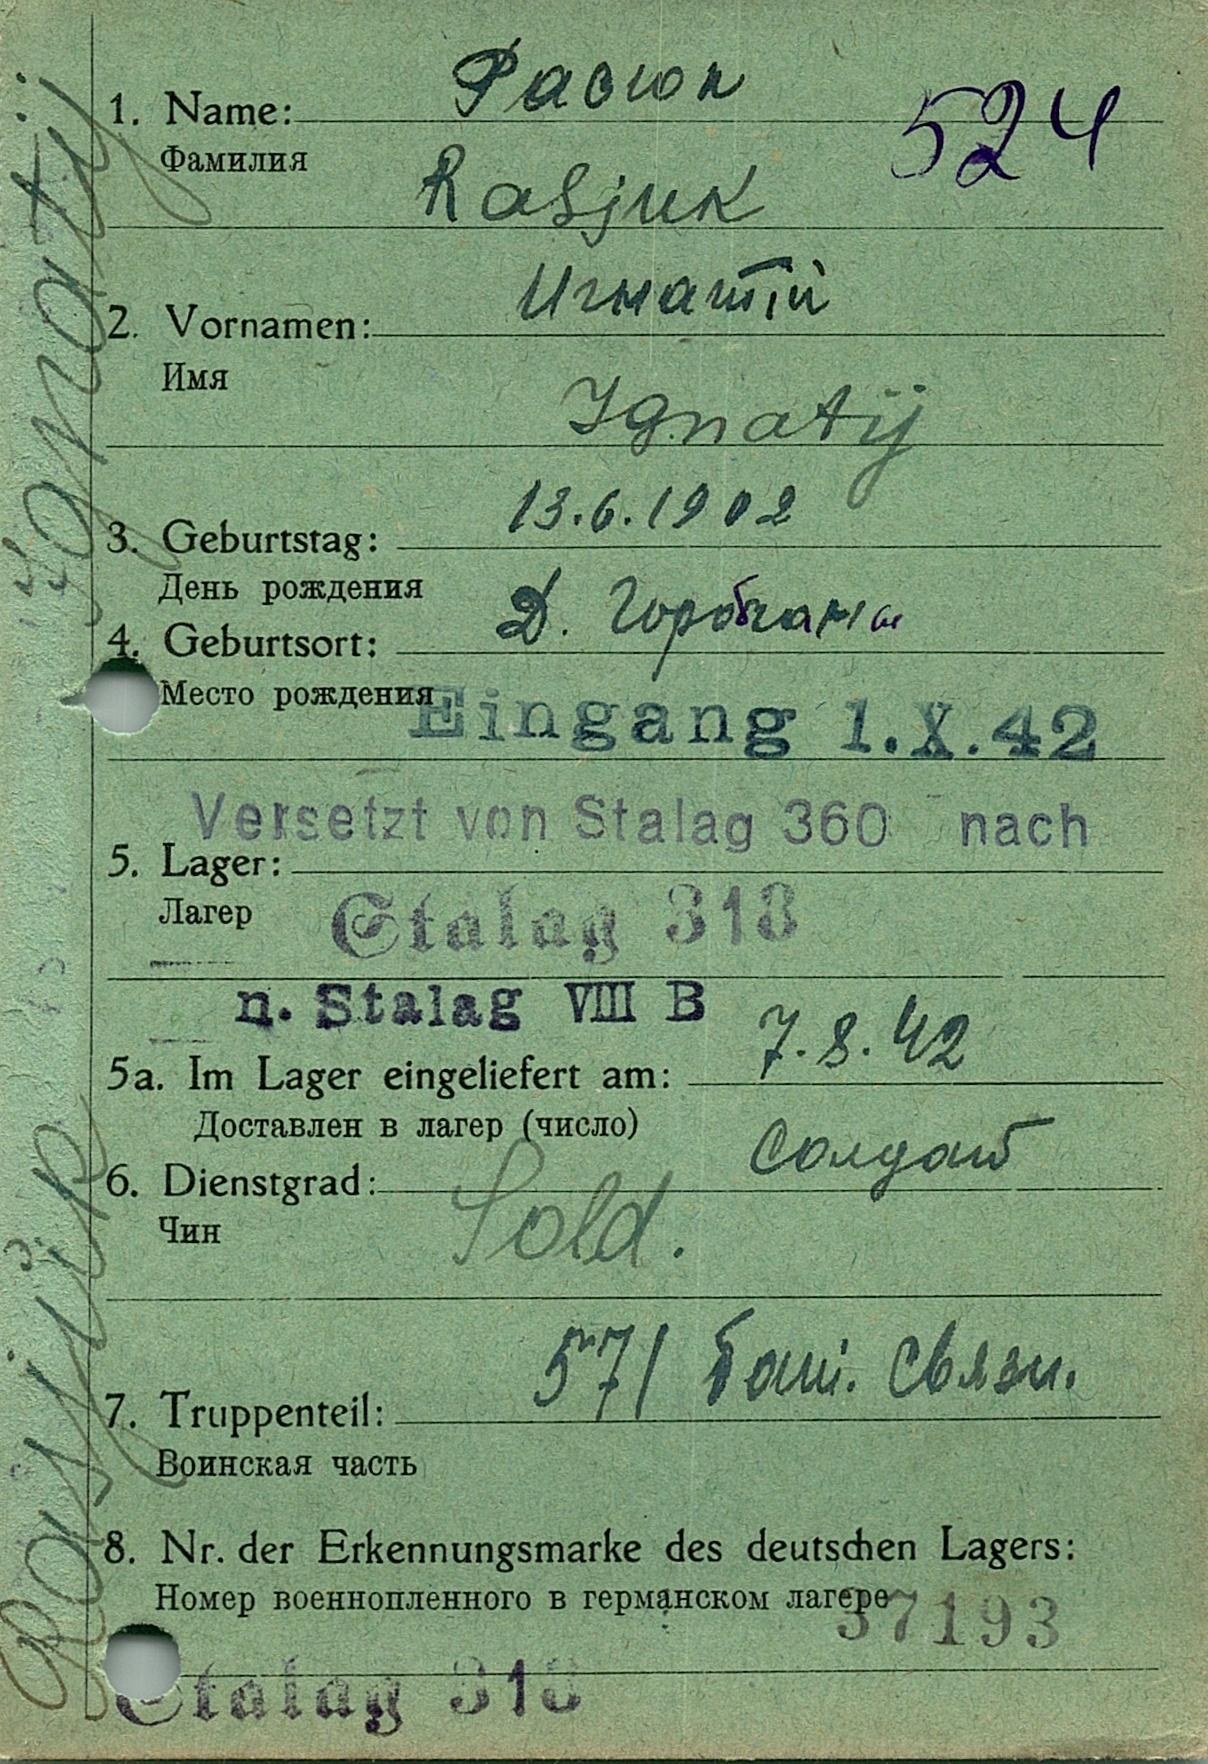 Расюк
1. Name:
524
Фамилия
Rasjuk
Игнатій
2. Vornamen:
Имя
Ignatij
13.6.1902
3. Geburtstag:
День рождения
Д. Горбаны
4. Geburtsort:
Место рождения
Eingang 1.X.42
Versetzt von Stalag 360 nach
5. Lager:
Лагер
Stalag 318
n. Stalag VIII B
7.8.42
5a. Im Lager eingeliefert am:
Доставлен в лагер (число)
Солдат
6. Dienstgrad:
Чин
Sold.
571 бат. связи.
7. Truppenteil:
Воинская часть
8. Nr. der Erkennungsmarke des deutschen Lagers:
Номер военнопленного в германском лагере
37193
Stalag 318
Rasjuk Ignatij